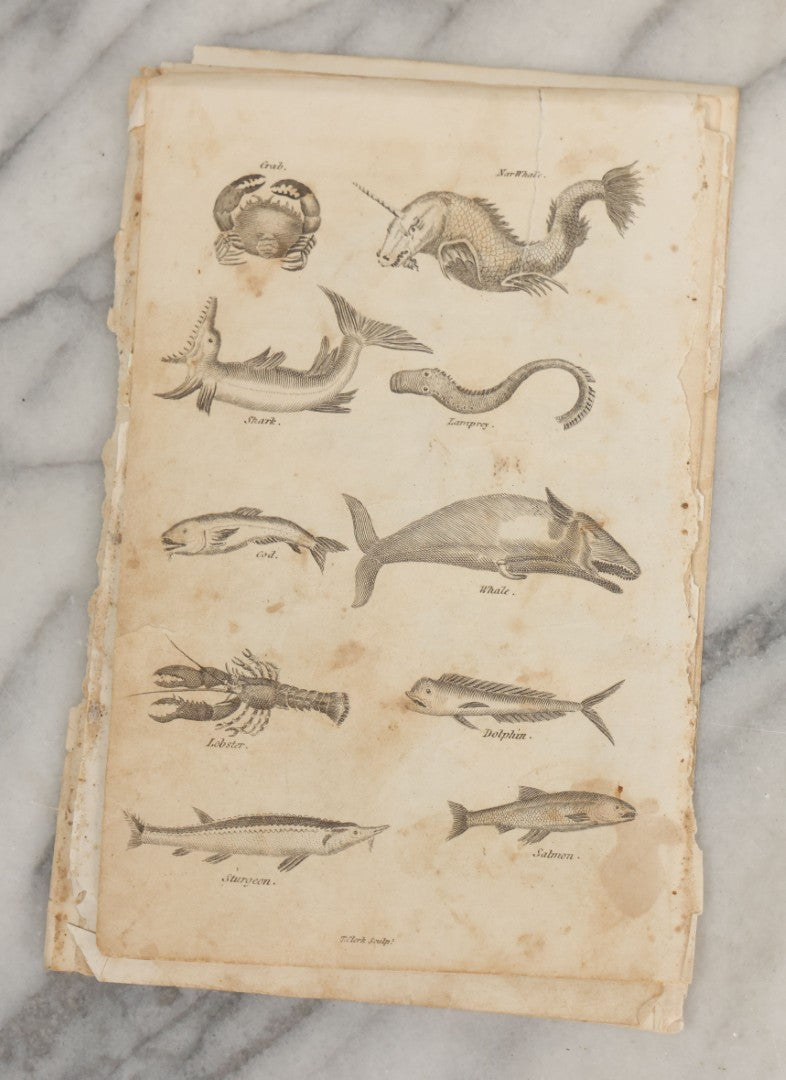 Crab.
NarWhale.
Shark.
Lamprey.
Cod.
Whale.
Lobster.
Dolphin.
Sturgeon.
Salmon.
T. Clerk Sculp.t